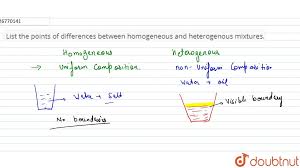 26770141
List the points of differences between homogeneous and heterogenous mixtures.
Homogeneous
Heterogenous
→ Uniform Composition.
non-Uniform Composition
Water + oil
→ Water + Salt
→ Visible boundary
No boundaries
doubtnut